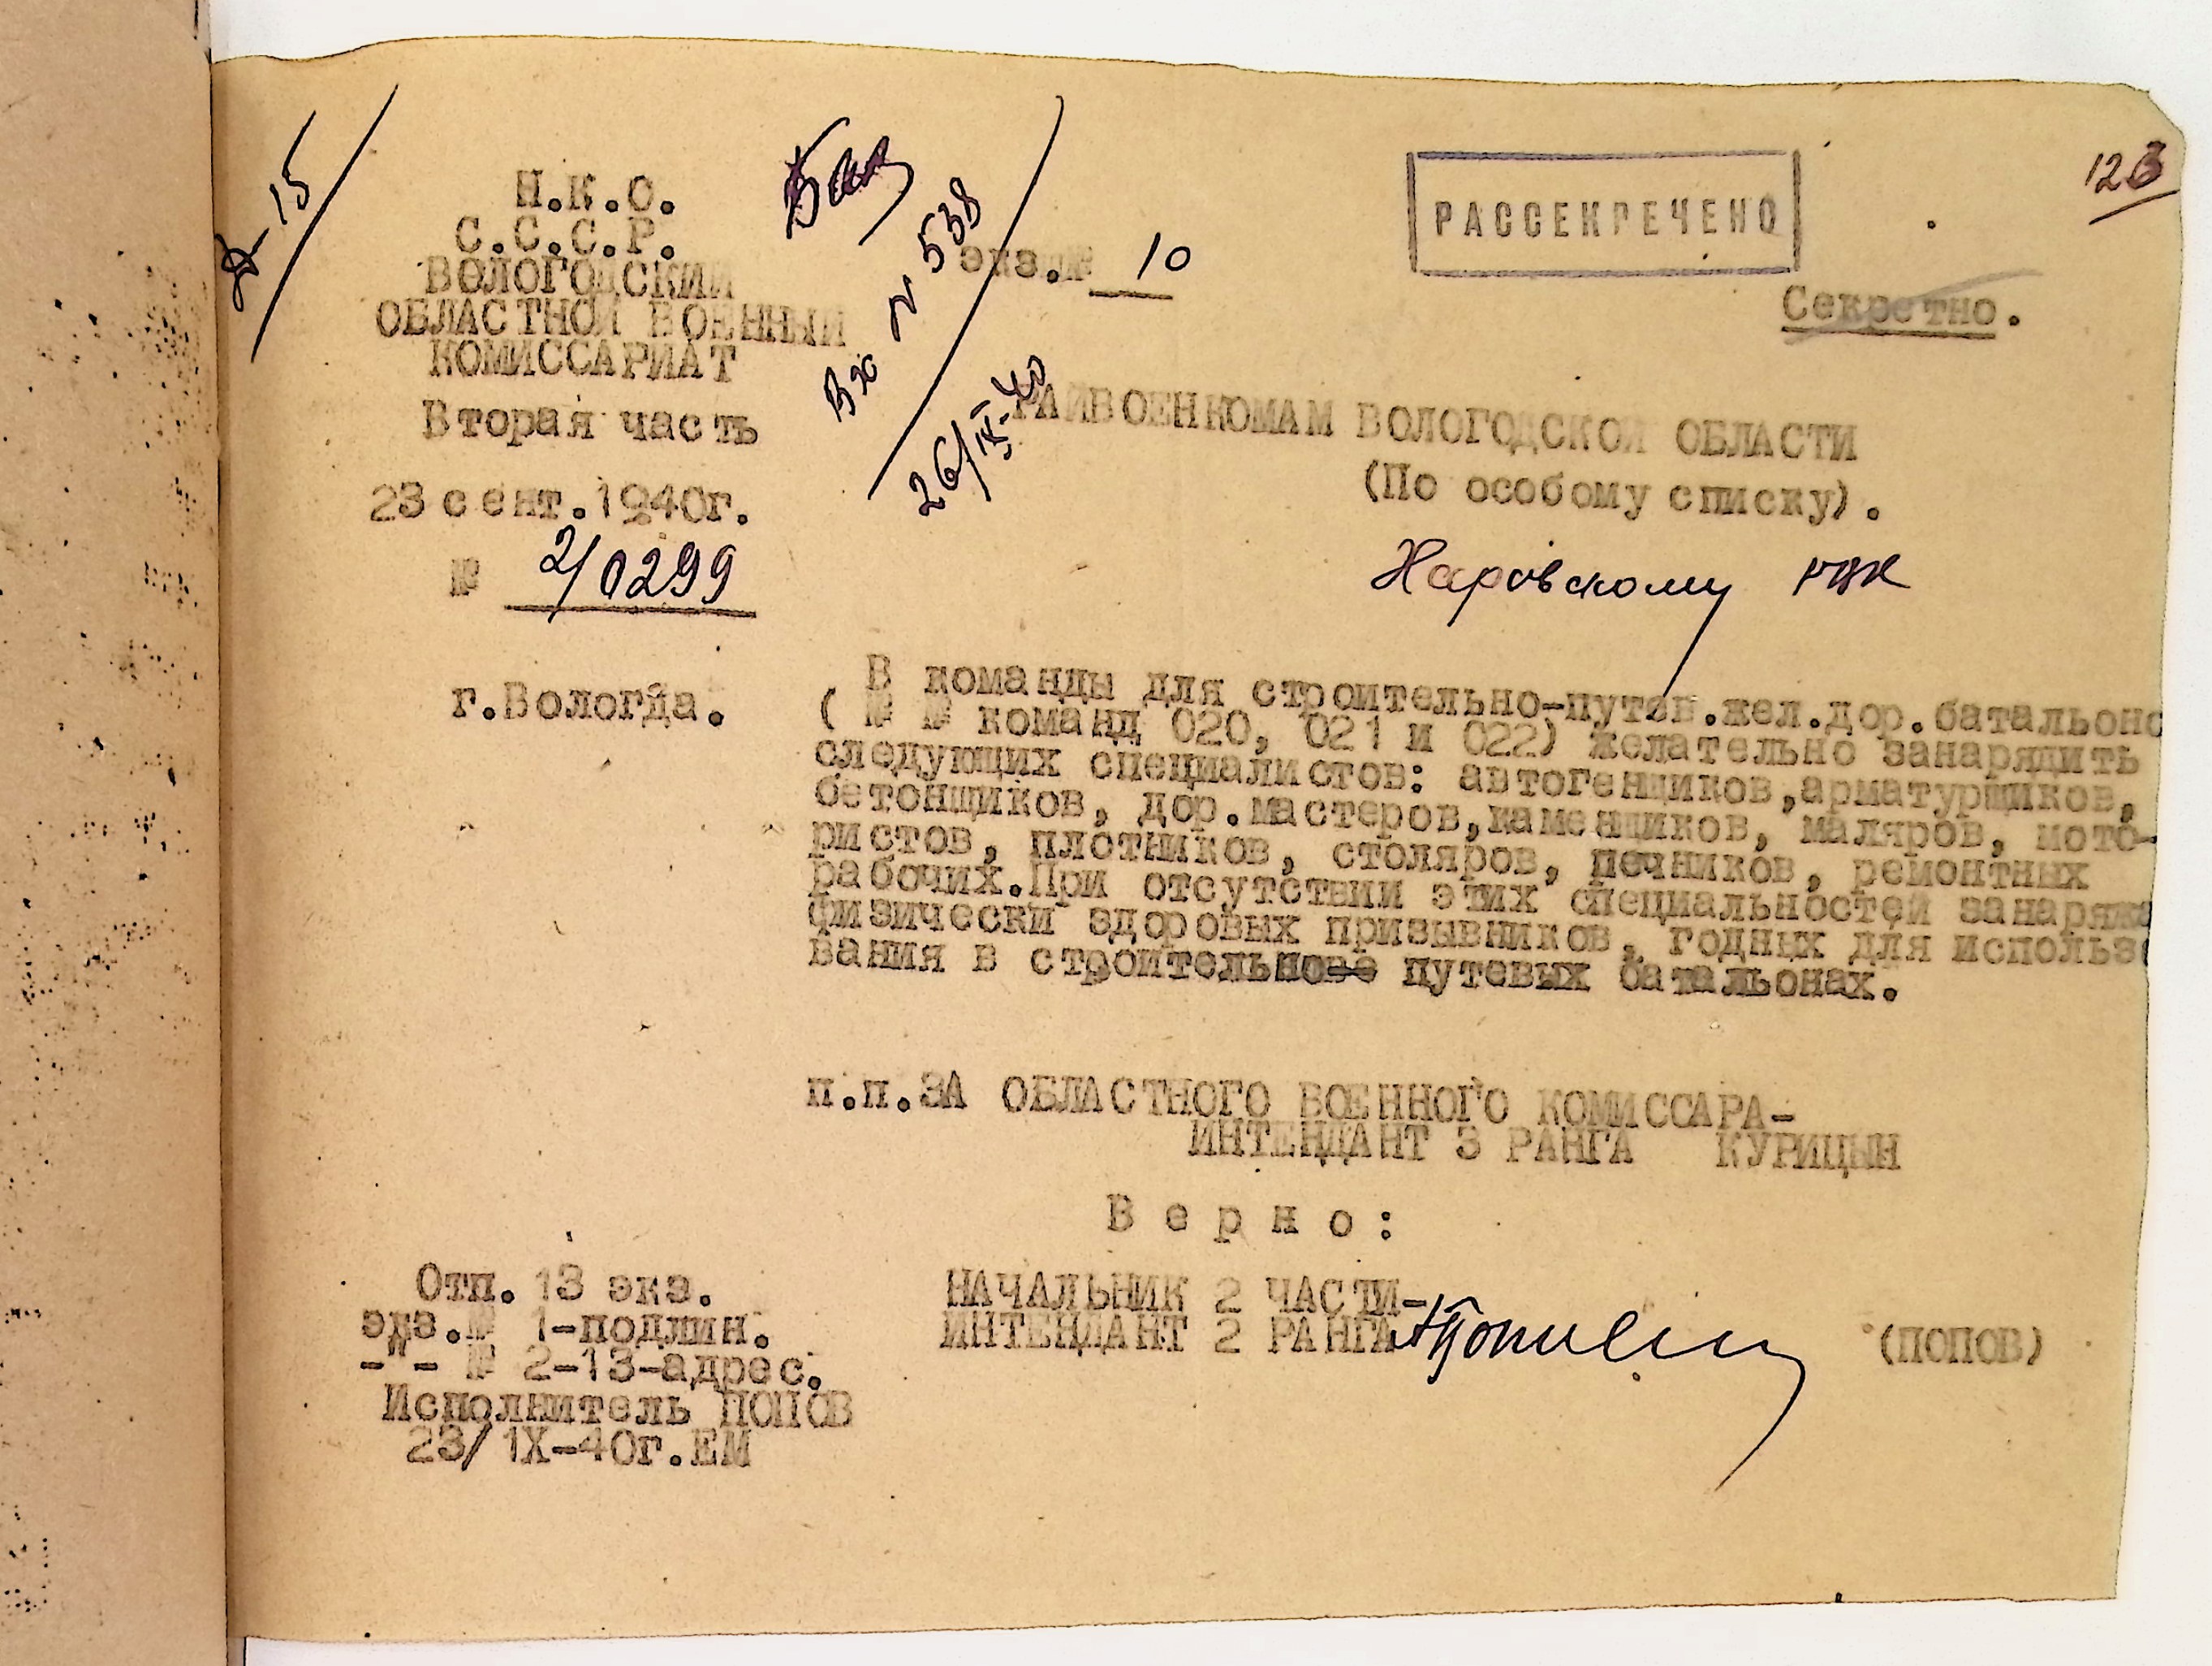 Д-15
Н.К.О.
С.С.С.Р.
ВОЛОГОДСКИЙ
ОБЛАСТНОЙ ВОЕННЫЙ
КОМИССАРИАТ
Вторая часть
23 сент.1940г.
№ 2/0299
г.Вологда.
Вх № 538
26/IX-40
экз.№ 10
РАССЕКРЕЧЕНО
123
Секретно.
РАЙВОЕНКОМАМ ВОЛОГОДСКОЙ ОБЛАСТИ
(По особому списку).
Харовскому РВК
В команды для строительно-путев.жел.дор.батальоно
( № № команд 020, 021 и 022) желательно занарядить
следующих специалистов: автогенщиков,арматурщиков,
бетонщиков, дор.мастеров,каменщиков, маляров, мото-
ристов, плотников, столяров, печников, ремонтных
рабочих.При отсутствии этих специальностей занаряжа
физически здоровых призывников, годных для использо
вания в строительно путевых батальонах.
п.п.ЗА ОБЛАСТНОГО ВОЕННОГО КОМИССАРА-
ИНТЕНДАНТ 3 РАНГА КУРИЦЫН
В е р н о :
НАЧАЛЬНИК 2 ЧАСТИ-
ИНТЕНДАНТ 2 РАНГА (ПОПОВ)
Отп. 13 экз.
экз.№ 1-подлин.
-"- № 2-13-адрес.
Исполнитель ПОПОВ
23/1Х-40г.ЕМ